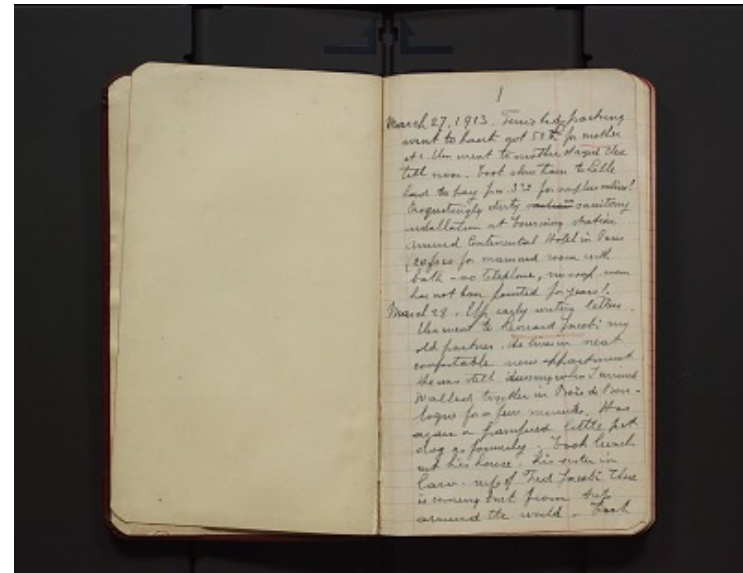 1
March 27, 1913. packing
went to bank got 50 for mother
etc then went to mother stayed there
till noon. Took slow train to Lille
had to pay frs. 3 for surplus valise!
Disgustingly dirty sanitary
installation at Tourcoing station
arrived Continental Hotel in Paris
frcs for room with
bath - no telephone, no soap. room
has not been painted for years!
March 28. Up early writing letters.
then went to Leonard Jacobi my
old partner. he lives in neat
comfortable new appartment
he was still when I arrived
Walked together in Bois de Bou-
logne for a few minutes. Has
again a pampered little pet
dog as formerly. Took lunch
at his house. his sister in
law. wife of Fred Jacobi there
is coming back from trip
around the world - Took